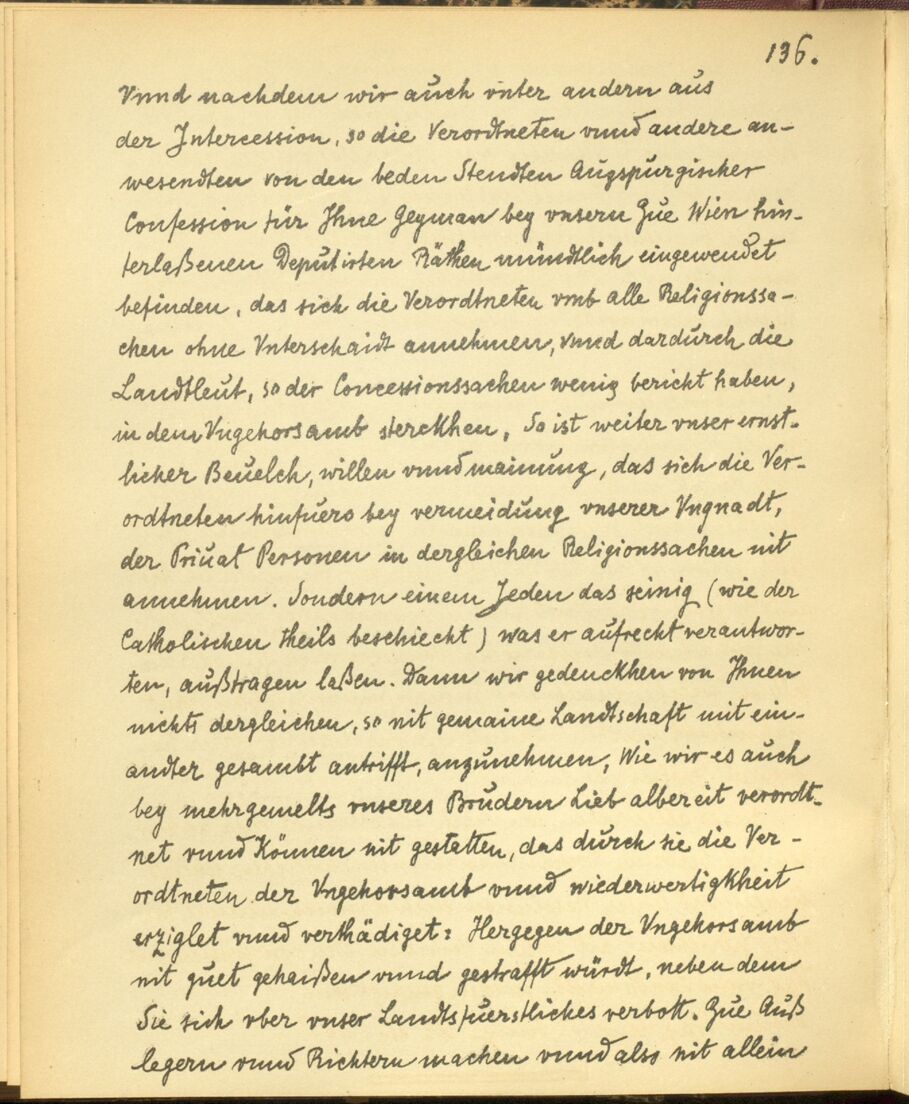 136.
Vnnd nachdem wir auch vnter andern aus
der Intercession, so die Verordtneten vnnd andere an-
wesendten von den beden Stendten Augspurgischer
Confession für Ihne Geyman bey vnsern Zue Wien hin-
terlaßenen Deputirten Räthen mündtlich eingewendet
befinden, das sich die Verordtneten vmb alle Religionssa-
chen ohne Vnterschaidt annehmen, vnnd dardurch die
Landtleut, so der Concessionssachen wenig bericht haben,
in dem Vngehorsamb sterckhen, So ist weiter vnser ernst-
licher Beuelch, willen vnnd mainung, das sich die Ver-
ordtneten hinfuero bey vermeidung vnserer Vngnadt,
der Priuat Personen in dergleichen Religionssachen nit
annehmen. Sondern einem Jeden das seinig (wie der
Catholischen theils beschiecht) was er aufrecht verantwor-
ten, außtragen laßen. Dann wir gedenckhen von Ihnen
nichts dergleichen, so nit gemaine Landtschaft mit ein-
andter gesambt antrifft, anzunehmen, Wie wir es auch
bey mehrgemelts vnseres Brudern Lieb albereit verordt-
net vnnd Können nit gestatten, das durch sie die Ver-
ordtneten der Vngehorsamb vnnd wiederwertigkheit
erziglet vnnd verthädiget: Hergegen der Vngehorsamb
nit guet gehaißen vnnd gestrafft würdt, neben dem
Sie sich vber vnser Landtsfuerstliches verbott. Zue Auß
legern vnnd Richtern machen vnnd also nit allein